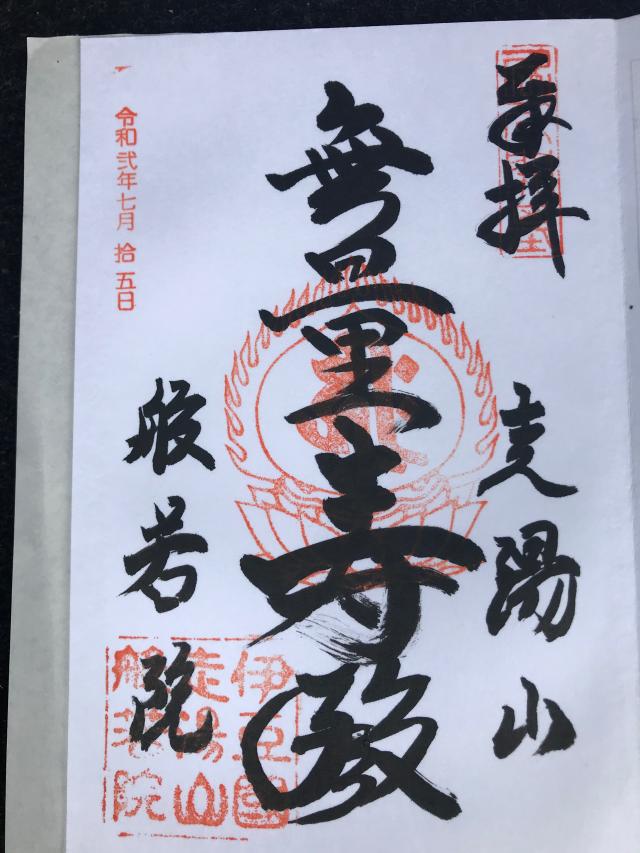 奉拝
走陽山
無量寿殿
般若院
令和弐年七月拾五日
伊豆國
走湯山
般若院